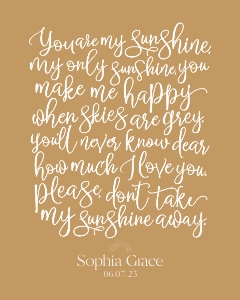 You are my sunshine,
my only sunshine, you
make me happy
when skies are grey.
You'll never know dear
how much I love you.
Please, don't take
my sunshine away.
Sophia Grace
06.07.23